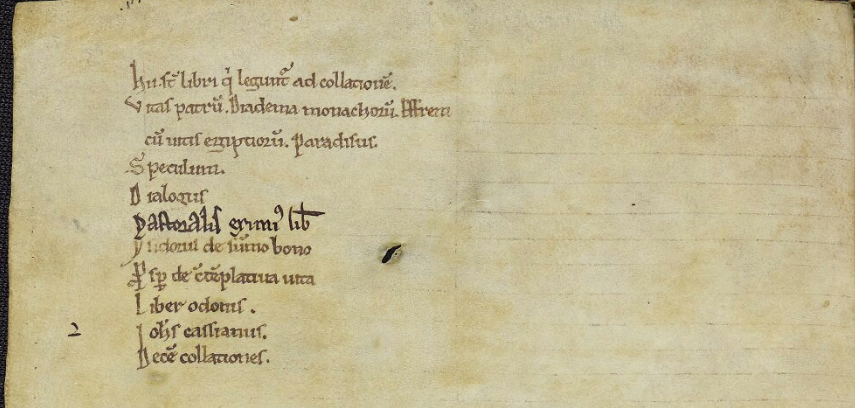 hii st̄ libri q̄ leguntᷣ ad collationē.
Vitas patrū. Diadema monachorū. Effrem
cū uitis egiptiorū. Paradisus.
Speculum.
Dialogus
Pastoralis eximiꝰ lib̄
ẏsidorus de sūmo bono
Ꝓsꝑ de ꝯtēplatiua uita
Liber odonis.
2 Ioh̄s cassianus.
Decē collationes.